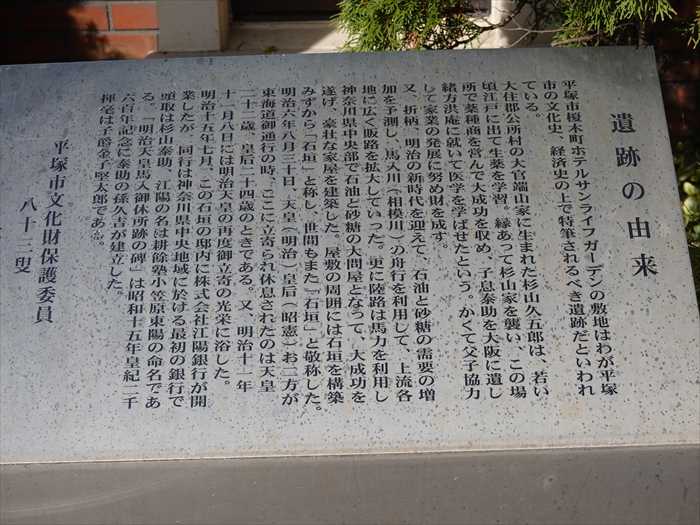 遺跡の由来
平塚市榎木町ホテルサンライフガーデンの敷地はわが平塚
市の文化史、経済史の上で特筆されるべき遺跡だといわれ
ている。
大住郡公所村の大官端山家に生まれた杉山久五郎は、若い
頃江戸に出て生薬を学習。縁あって杉山家を襲い、この場
所で薬種商を営んで大成功を収め、子息泰助を大阪に遣し
緒方洪庵に就いて医学を学ばせたという。かくて父子協力
して家業の発展に努め財を成す。
又、折柄、明治の新時代を迎えて、石油と砂糖の需要の増
加を予測し、馬入川(相模川)の舟行を利用して、上流各
地に広く販路を拡大していった。更に陸路は馬力を利用し
神奈川県中央部で石油と砂糖の大問屋となって、大成功を
遂げ、豪壮な家屋を建築した。屋敷の周囲には石垣を構築
みずから「石垣」と称し、世間もまた「石垣」と敬称した。
明治六年八月三十日、天皇(明治)皇后(昭憲)お二方が
東海道御通行の時、ここに立寄られ休息されたのは天皇
二十一歳、皇后二十四歳のときである。又、明治十一年
十一月八日には明治天皇の再度御立寄の光栄に浴した。
明治十五年七月、この石垣の邸内に株式会社江陽銀行が開
業したが、同行は神奈川県中央地域に於ける最初の銀行で
頭取は杉山泰助、江陽の名は耕餘塾小笠原東陽の命名であ
る。「明治天皇馬入御休所跡の碑」は昭和十五年皇紀二千
六百年記念に泰助の孫久吉が建立した。
揮毫は子爵金子堅太郎である。
平塚市文化財保護委員
八十三叟